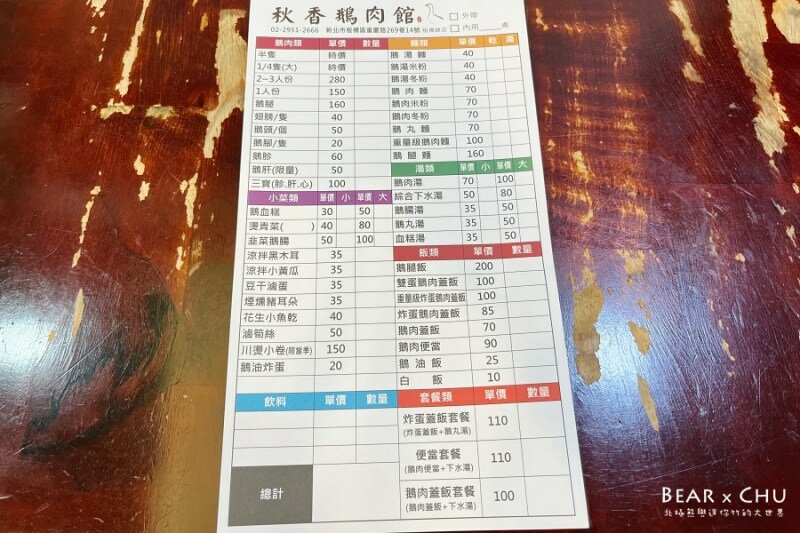 秋香鵝肉館
外帶
02-2951-2666 新北市板橋區重慶路269巷14號 板橋總店
內用 桌
鵝肉類 單價 數量
半隻 時價
1/4隻(大) 時價
2~3人份 280
1人份 150
鵝腿 160
翅膀/隻 40
鵝頭/個 50
鵝腳/隻 20
鵝胗 60
鵝肝(限量) 50
三寶(胗.肝.心) 100
小菜類 單價 小 單價 大
鵝血糕 30 50
燙青菜( ) 40 80
韭菜鵝腸 50 100
涼拌黑木耳 35
涼拌小黃瓜 35
豆干滷蛋 35
煙燻豬耳朵 35
花生小魚乾 40
滷筍絲 50
川燙小卷(限當季) 150
鵝油炸蛋 20
飲料 單價 數量
總計
麵類 單價 乾 湯
鵝湯麵 40
鵝湯米粉 40
鵝湯冬粉 40
鵝肉麵 70
鵝肉米粉 70
鵝肉冬粉 70
鵝丸麵 70
重量級鵝肉麵 100
鵝腿麵 160
湯類 單價 小 單價 大
鵝肉湯 70 100
綜合下水湯 50 80
鵝腸湯 35 50
鵝丸湯 35 50
血糕湯 35 50
飯類 單價 數量
鵝腿飯 200
雙蛋鵝肉蓋飯 100
重量級炸蛋鵝肉蓋飯 100
炸蛋鵝肉蓋飯 85
鵝肉蓋飯 70
鵝肉便當 90
鵝油飯 25
白飯 10
套餐類 單價 數量
炸蛋蓋飯套餐 110
(炸蛋蓋飯+鵝丸湯)
便當套餐 110
(鵝肉便當+下水湯)
鵝肉蓋飯套餐 100
(鵝肉蓋飯+下水湯)
BEAR x CHU
北極熊與迷你竹的大世界